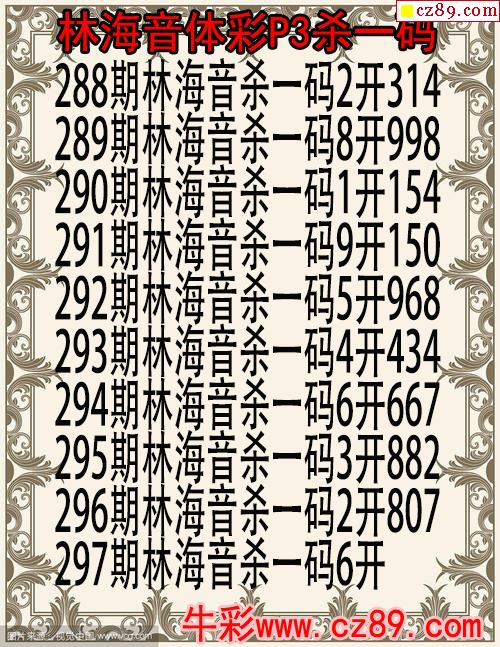 cz89.com
林海音体彩P3杀一码
288期林海音杀一码2开314
289期林海音杀一码8开998
290期林海音杀一码1开154
291期林海音杀一码9开150
292期林海音杀一码5开968
293期林海音杀一码4开434
294期林海音杀一码6开667
295期林海音杀一码3开882
296期林海音杀一码2开807
297期林海音杀一码6开
牛彩www.cz89.com
图片来源：视觉中国 www.vcg.com